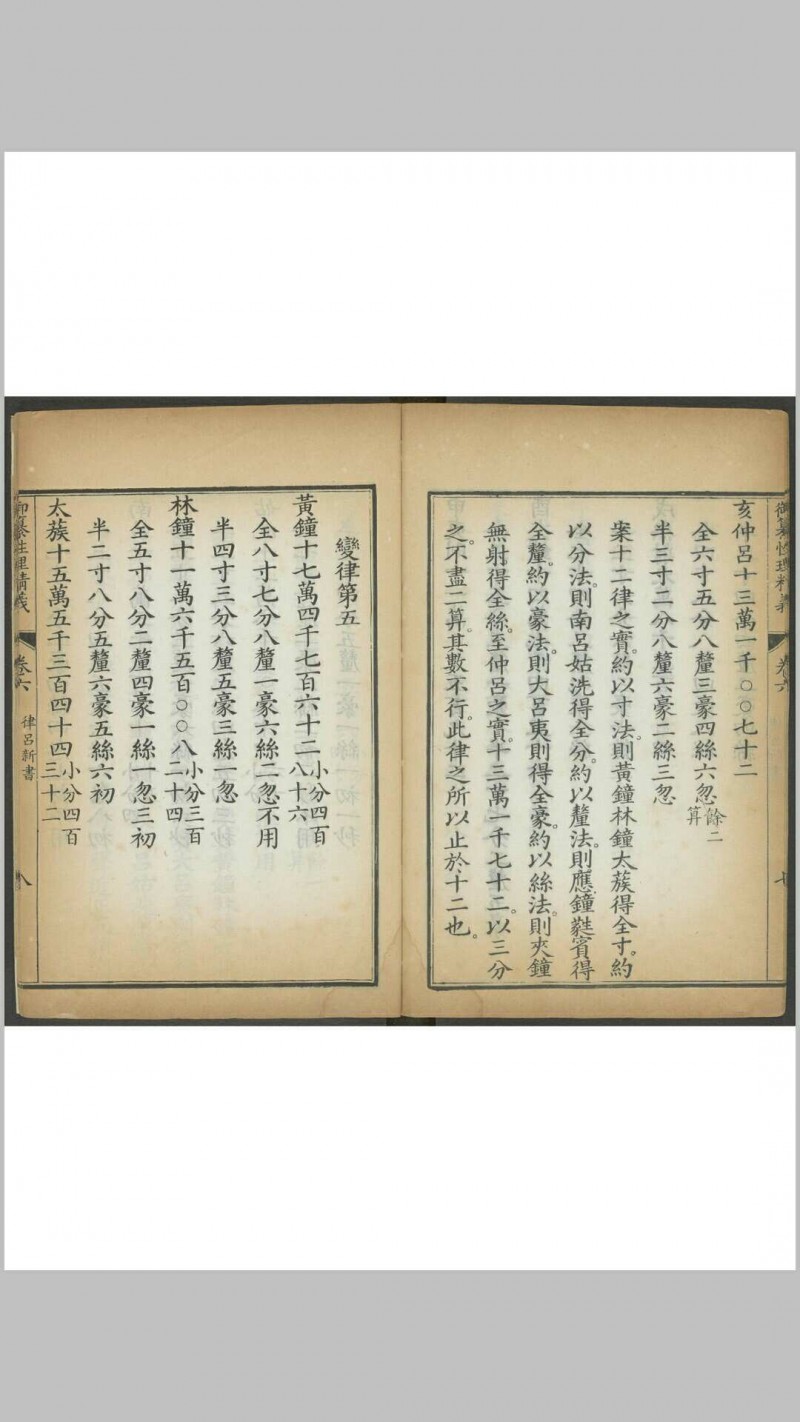 御纂性理精義
卷六
七
亥仲呂十三萬一千〇〇七十二
全六寸五分八釐三豪四絲六忽餘二算
半三寸二分八釐六豪二絲三忽
案十二律之實。約以寸法。則黃鐘林鐘太蔟得全寸。約
以分法。則南呂姑洗得全分。約以釐法。則應鐘蕤賓得
全釐。約以豪法。則大呂夷則得全豪。約以絲法。則夾鐘
無射得全絲。至仲呂之實。十三萬一千七十二。以三分
之。不盡二算。其數不行。此律之所以止於十二也。
變律第五
黃鐘十七萬四千七百六十二小分四百八十六
全八寸七分八釐一豪六絲二忽不用
半四寸三分八釐五豪三絲一忽
林鐘十一萬六千五百〇〇八小分三百二十四
全五寸八分二釐四豪一絲一忽三初
半二寸八分五釐六豪五絲六初
太蔟十五萬五千三百四十四小分四百三十二
御纂性理精義
卷六
律呂新書
八